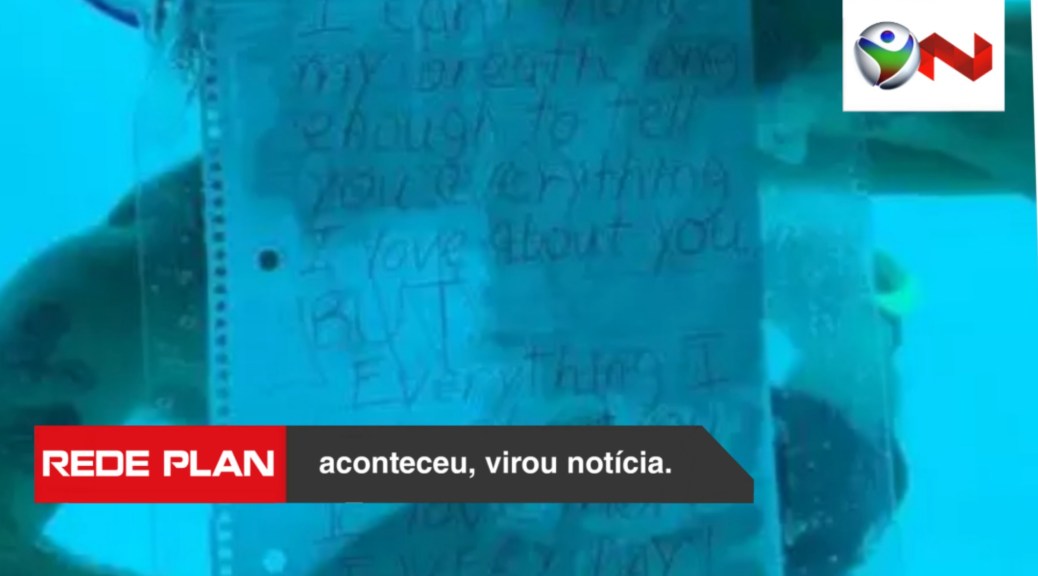 I can't hold
my breath long
enough to tell
you everything
I love about you.
BUT
Everything I
REDE PLAN
aconteceu, virou notícia.
I love
EVERY DAY!